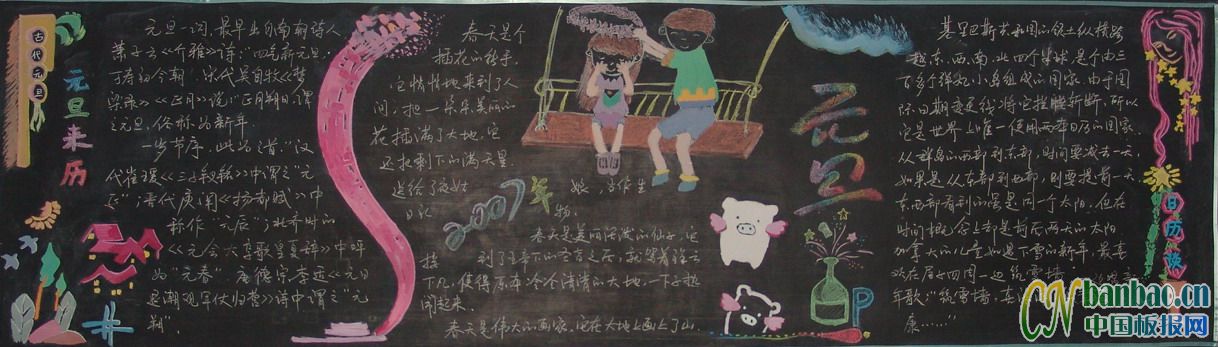 古代元旦
元旦来历
元旦一词,最早出自南朝诗人
萧子云《介雅》诗:“四气新元旦,
万寿初今朝”。宋代吴自牧《梦
粱录》《正月》说:“正月朔日,谓
之元旦,俗称为新年。
一岁节序,此为之首。”汉
代崔瑗《三子钗铭》中谓之“元
正”;晋代庾阐《扬都赋》中
称作“元辰”;北齐时的
《元会大享歌皇夏辞》中呼
为“元春”;唐德宗李适《元日
退朝观军仗归营》诗中谓之“元
朔”。
春天是个
插花的能手,
它悄悄地来到了人
间,把一朵朵美丽的
花插满了大地,它
还把剩下的满天星
送给了夜姑
娘,当作生
日礼
物。
2007年
春天是美丽活泼的仙子,它
接到了王帝下的圣旨之后,就笑着
下凡,使得原本冷冷清清的大地,一下子热
闹起来。
春天是伟大的画家,它在大地上画上了山
元旦
P
基里巴斯共和国的领土纵横跨
越东、西、南、北四个半球,是个由三
百多个群礼小岛组成的国家,由于国
际日期变更线将它拦腰斩断,所以
它是世界上唯一使用两来日历的国家。
从群岛的西部到东部,时间要减去一天,
如果是从东部到西部,则要提前一天
东西部看到的虽是同一个太阳,但在
时间概念上却是前后两天的太阳
加拿大的儿童如遇下雪的新年,最喜
欢在屋子四周一边筑雪墙,
年歌:“筑雪墙,
康……”
日历
CN banbao.cn
中国板报网